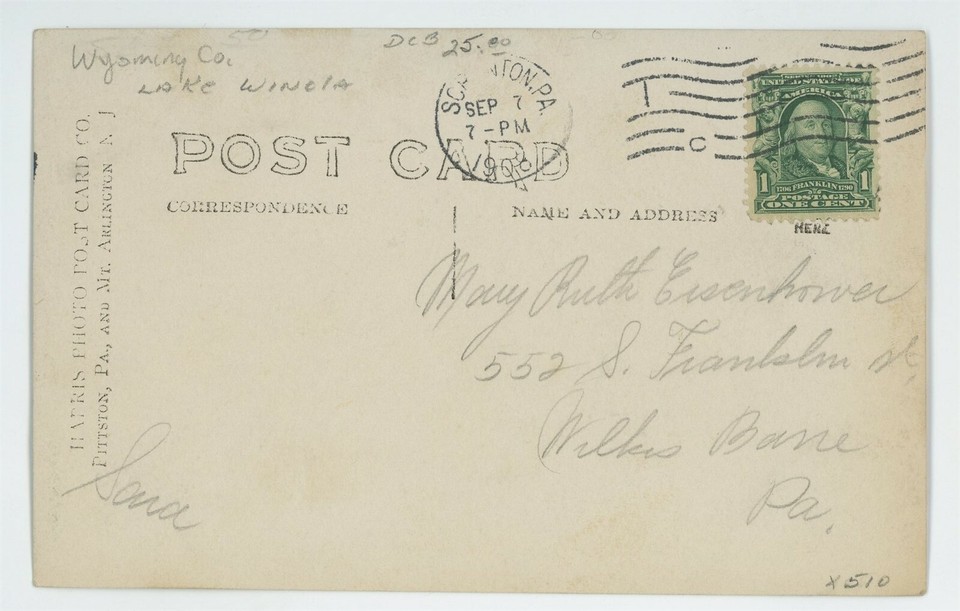 Wyoming Co.
LAKE WINOLA
DCB 25.00
50
SCRANTON, PA.
SEP 7
7 - PM
190
C
SERIES 1902
UNITED STATES OF
AMERICA
1 1706 FRANKLIN 1790 1
POSTAGE
ONE CENT
HERE
POST CARD
CORRESPONDENCE
NAME AND ADDRESS
HARRIS PHOTO POST CARD CO.
PITTSTON, PA., AND MT. ARLINGTON N. J
Mary Ruth Eisenhower
552 S. Franklin st.
Wilkes Barre
Pa.
Sara
x510